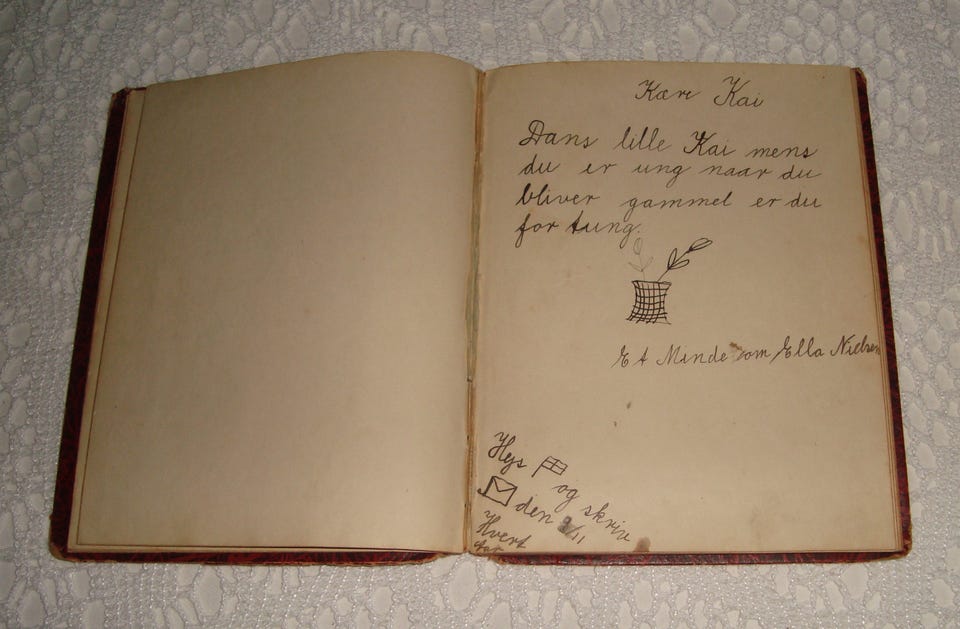 Kære Kai
Dans lille Kai mens
du er ung naar du
bliver gammel er du
for tung.
Et Minde om Ella Nielsen
Hejs
og skriv
den /11
Hvert
Aar